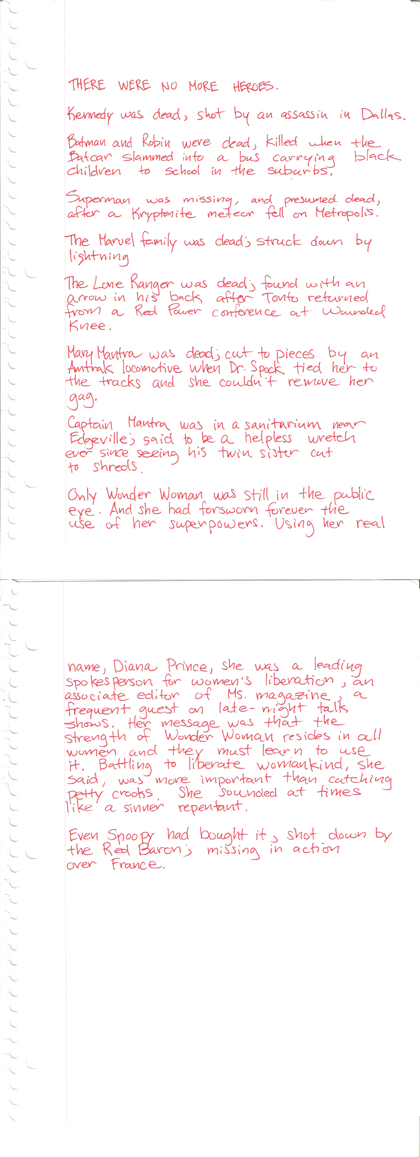 THERE WERE NO MORE HEROES.
Kennedy was dead, shot by an assassin in Dallas.
Batman and Robin were dead, killed when the
Batcar slammed into a bus carrying black
children to school in the suburbs.
Superman was missing, and presumed dead,
after a Kryptonite meteor fell on Metropolis.
The Marvel family was dead; struck down by
lightning
The Lone Ranger was dead; found with an
arrow in his back after Tonto returned
from a Red Power conference at Wounded
Knee.
Mary Mantra was dead; cut to pieces by an
Amtrak locomotive when Dr. Spock tied her to
the tracks and she couldn't remove her
gag.
Captain Mantra was in a sanitarium near
Edgeville; said to be a helpless wretch
ever since seeing his twin sister cut
to shreds.
Only Wonder Woman was still in the public
eye. And she had forsworn forever the
use of her superpowers. Using her real
name, Diana Prince, she was a leading
spokesperson for women's liberation, an
associate editor of Ms. magazine, a
frequent guest on late-night talk
shows. Her message was that the
strength of Wonder Woman resides in all
women and they must learn to use
it. Battling to liberate womankind, she
said, was more important than catching
petty crooks. She sounded at times
like a sinner repentant.
Even Snoopy had bought it, shot down by
the Red Baron; missing in action
over France.